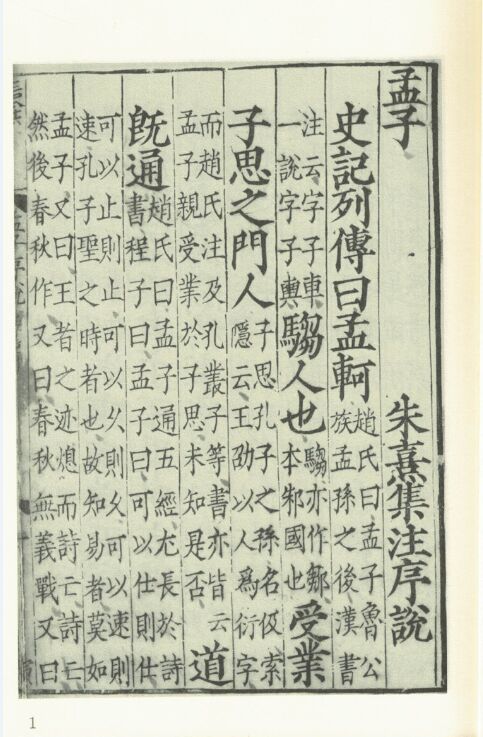 孟子 朱熹集注序說
史記列傳曰孟軻 趙氏曰孟子魯公族孟孫之後漢書
注云字子車一說字子輿 騶人也 騶亦作鄒本邾國也 受業
子思之門人 子思孔子之孫名伋索隱云王劭以人爲衍字
而趙氏注及孔叢子等書亦皆云孟子親受業於子思未知是否 道
旣通 趙氏曰孟子通五經尤長於詩書程子曰孟子曰可以仕則仕
可以止則止可以久則久可以速則速孔子聖之時者也故知易者莫如
孟子又曰王者之迹熄而詩亡詩亡然後春秋作又曰春秋無義戰又曰
1